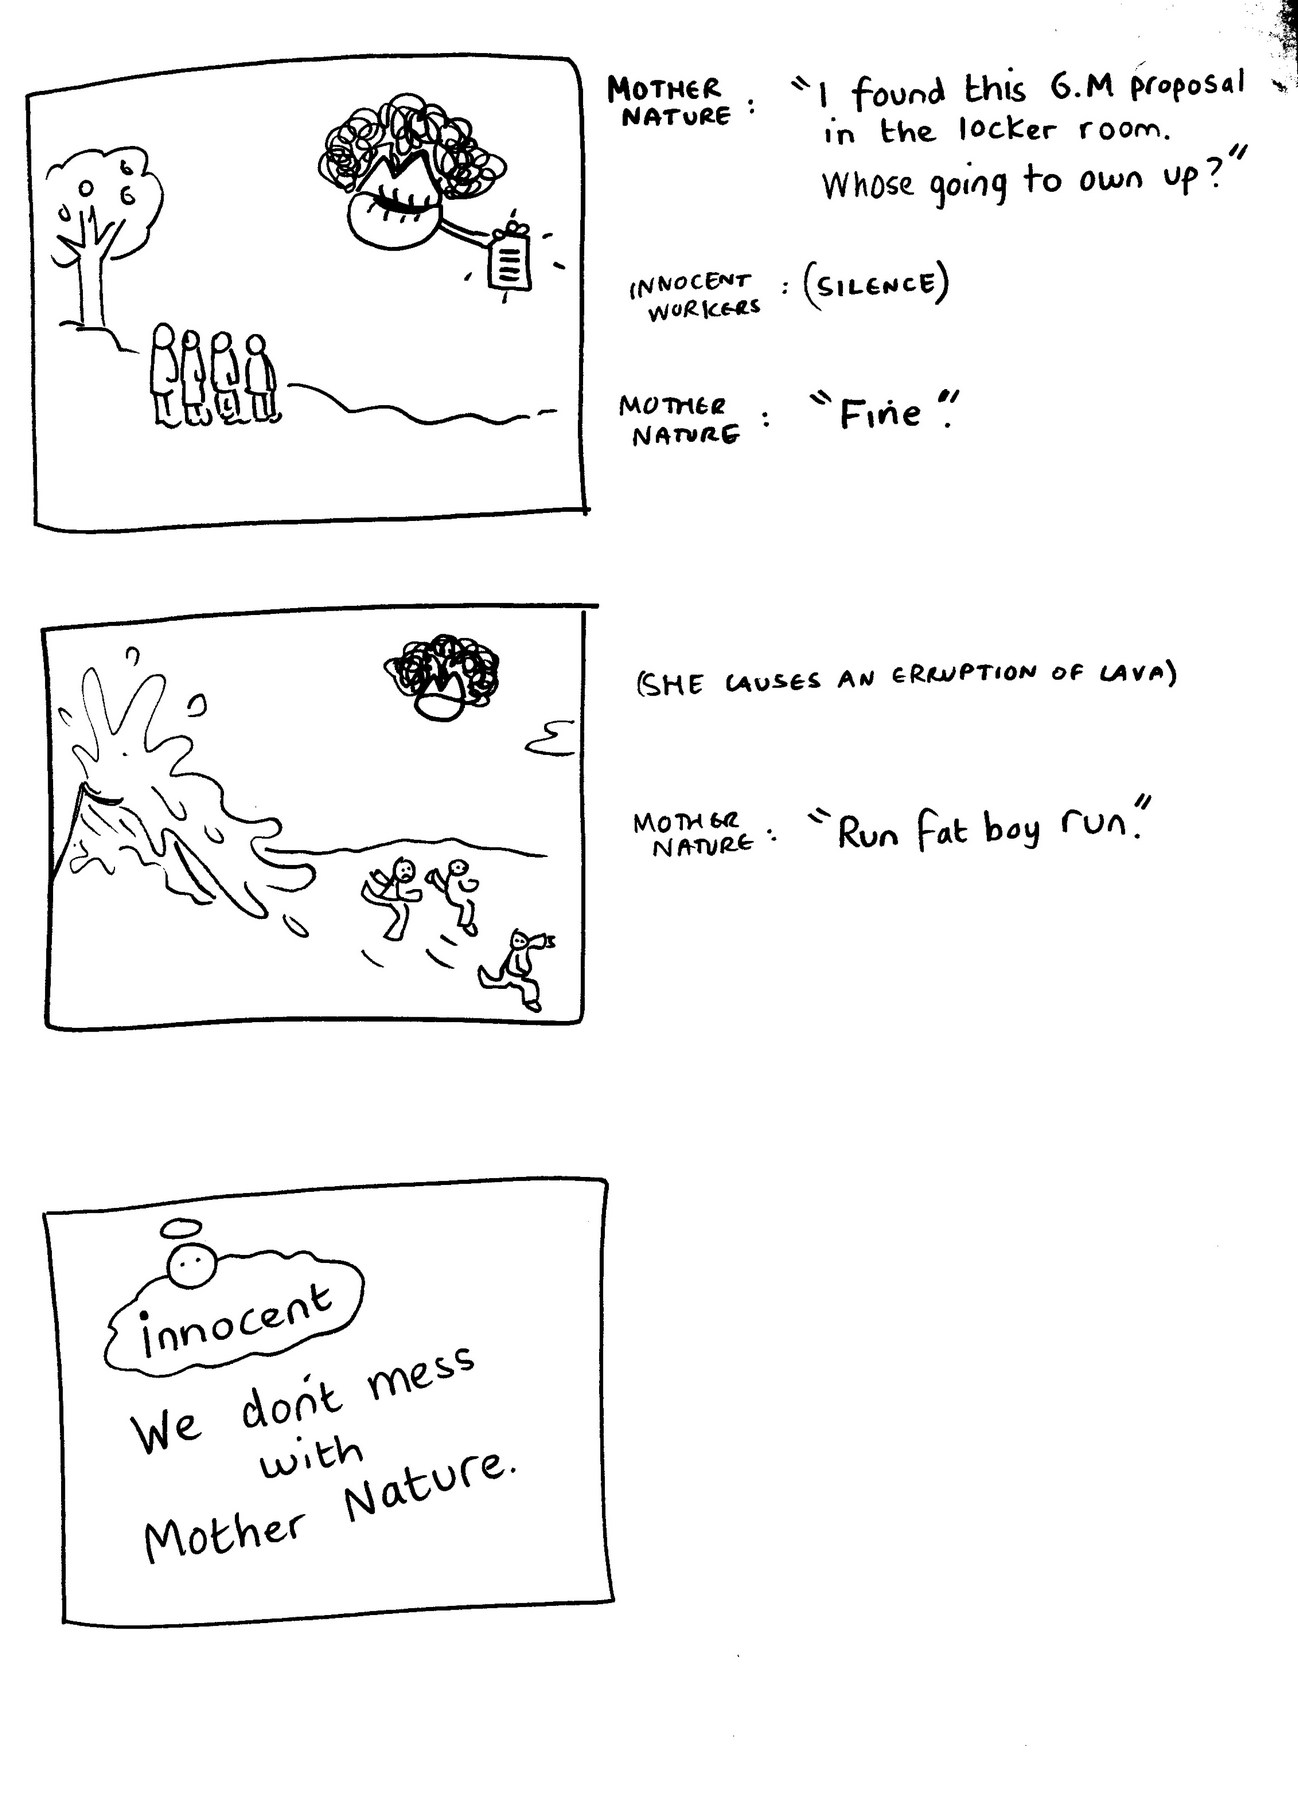 MOTHER
NATURE : "I found this G.M proposal
in the locker room.
Whose going to own up?"
INNOCENT
WORKERS : (SILENCE)
MOTHER
NATURE : "Fine".
(SHE CAUSES AN ERRUPTION OF LAVA)
MOTHER
NATURE : "Run fat boy run."
innocent
We don't mess
with
Mother Nature.